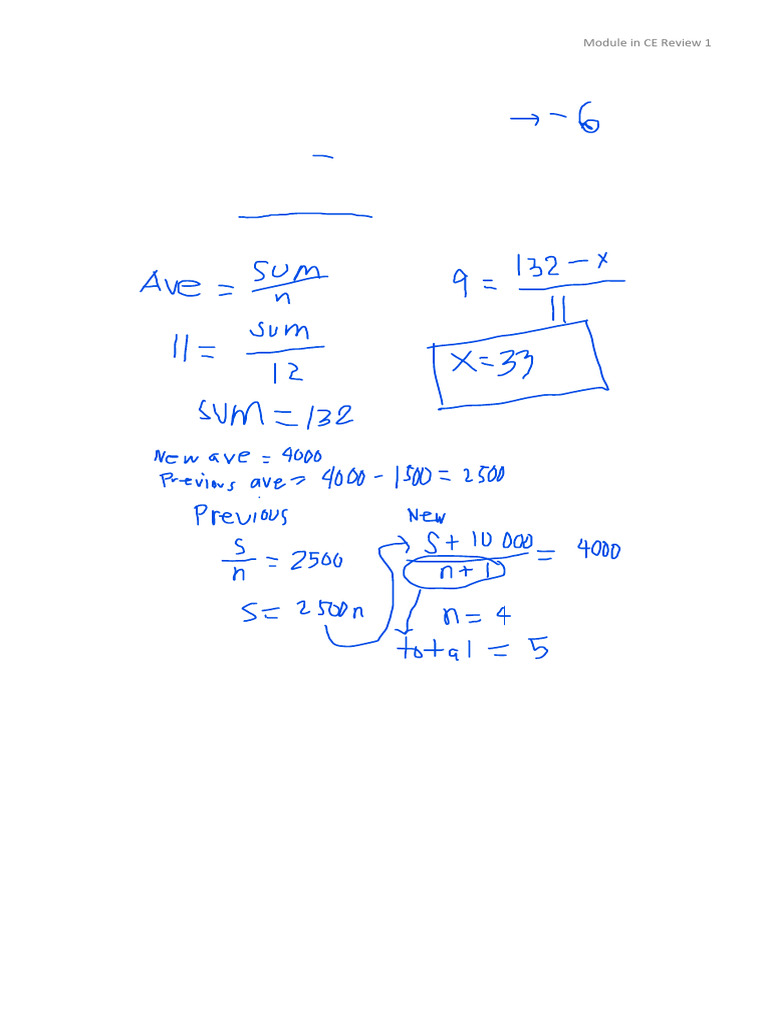 Module in CE Review 1
→ - 6
-
Ave = sum / n
11 = sum / 12
sum = 132
9 = 132 - x / 11
x = 33
New ave = 4000
Previous ave = 4000 - 1500 = 2500
Previous
s / n = 2500
s = 2500n
New
s + 10 000 / n + 1 = 4000
n = 4
total = 5